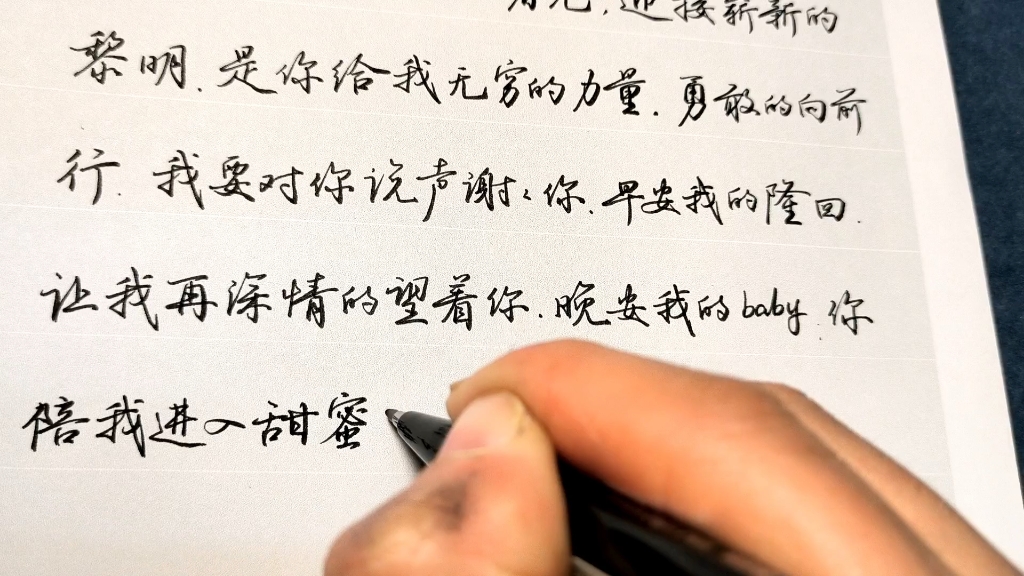 迎接崭新的
黎明.是你给我无穷的力量.勇敢的向前
行.我要对你说声谢谢你.早安我的隆回.
让我再深情的望着你.晚安我的baby.你
陪我进入甜蜜